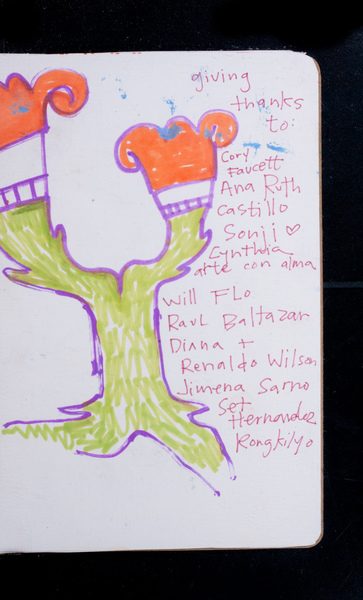 giving
thanks
to:
Cory
Faucett
Ana Ruth
Castillo
Sonji ♡
Cynthia
arte con alma
Will FLo
Raul Baltazar
Diana +
Renaldo Wilson
Jimena Sarno
Set
Hernandez
Rongkilyo